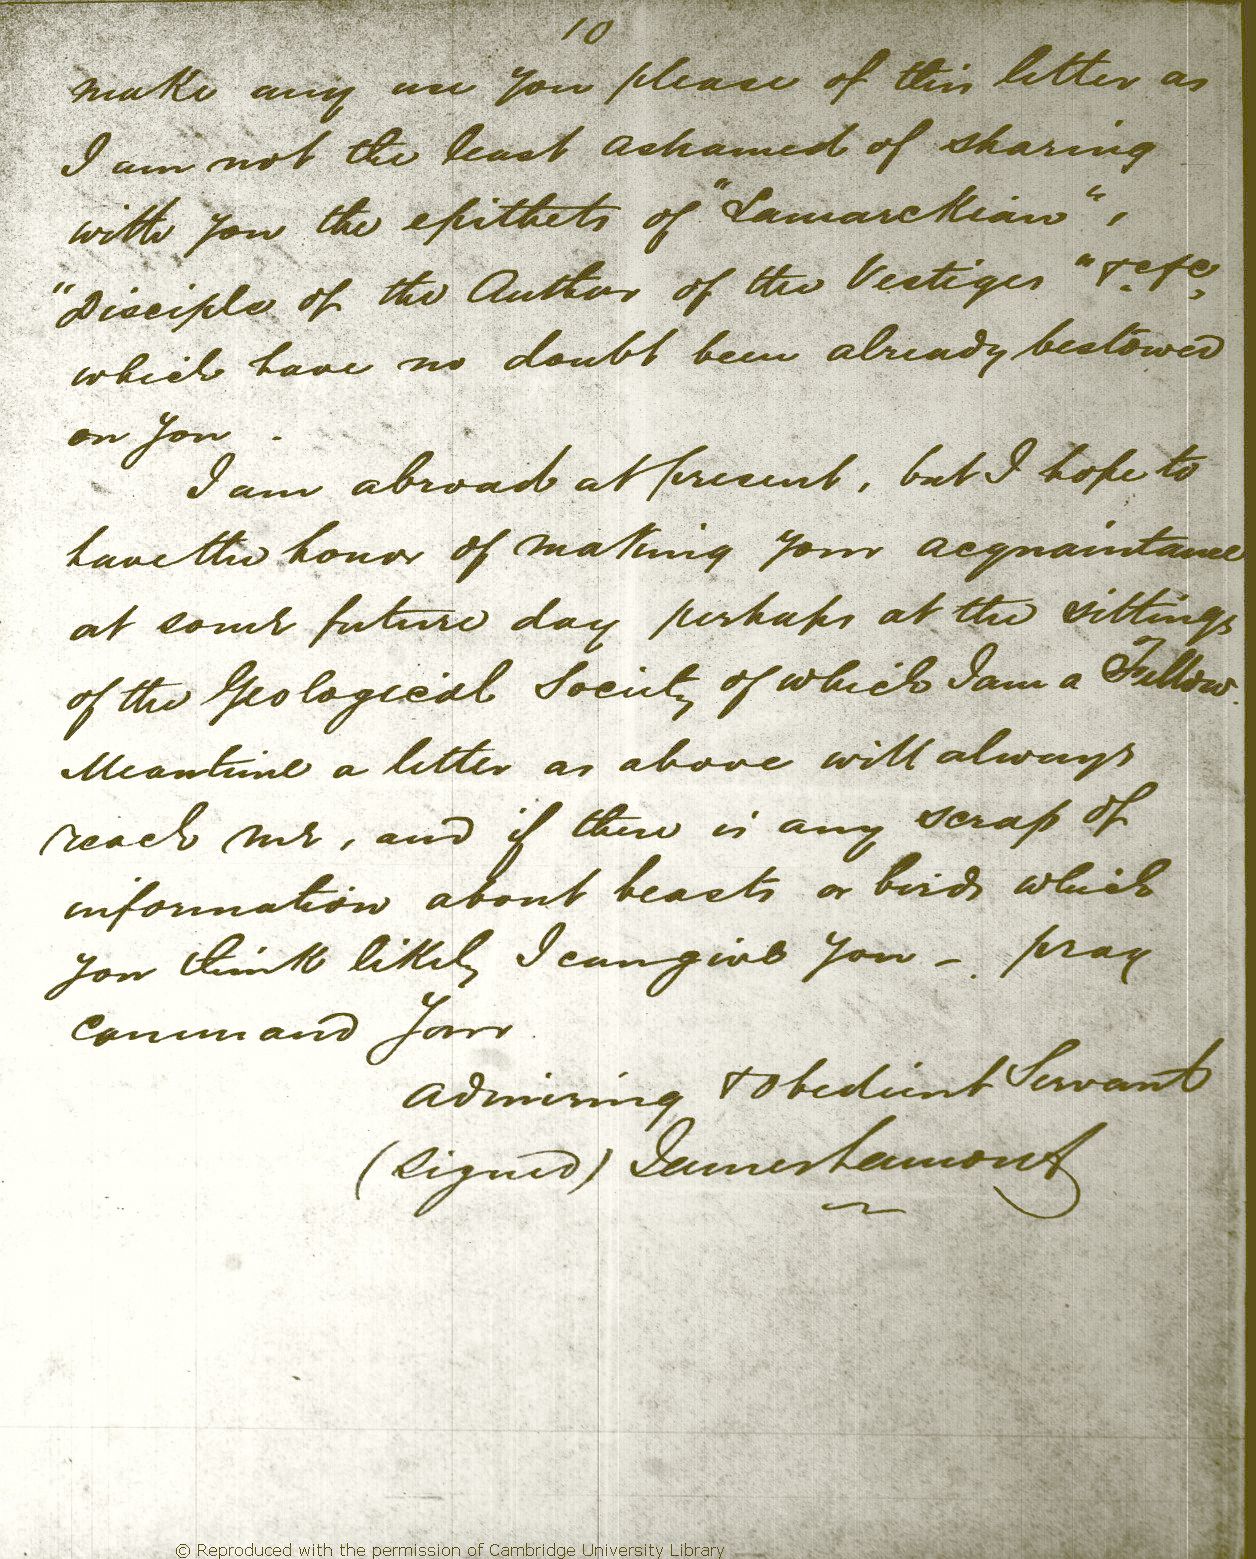 10
make any use you please of this letter as
I am not the least ashamed of sharing
with you the epithets of "Lamarckian",
"Disciple of the Author of the Vestiges" &c &c,
which have no doubt been already bestowed
on you.
I am abroad at present, but I hope to
have the honor of making your acquaintance
at some future day perhaps at the sittings
of the Geological Society of which I am a Fellow.
Meantime a letter as above will always
reach me, and if there is any scrap of
information about beasts or birds which
you think likely I can give you – pray
command Your
admiring & obedient Servant
(signed) James Lamont
© Reproduced with the permission of Cambridge University Library